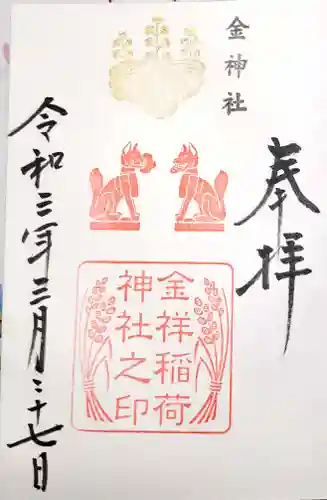 金神社
奉拝
金祥稲荷
神社之印
令和三年三月二十七日